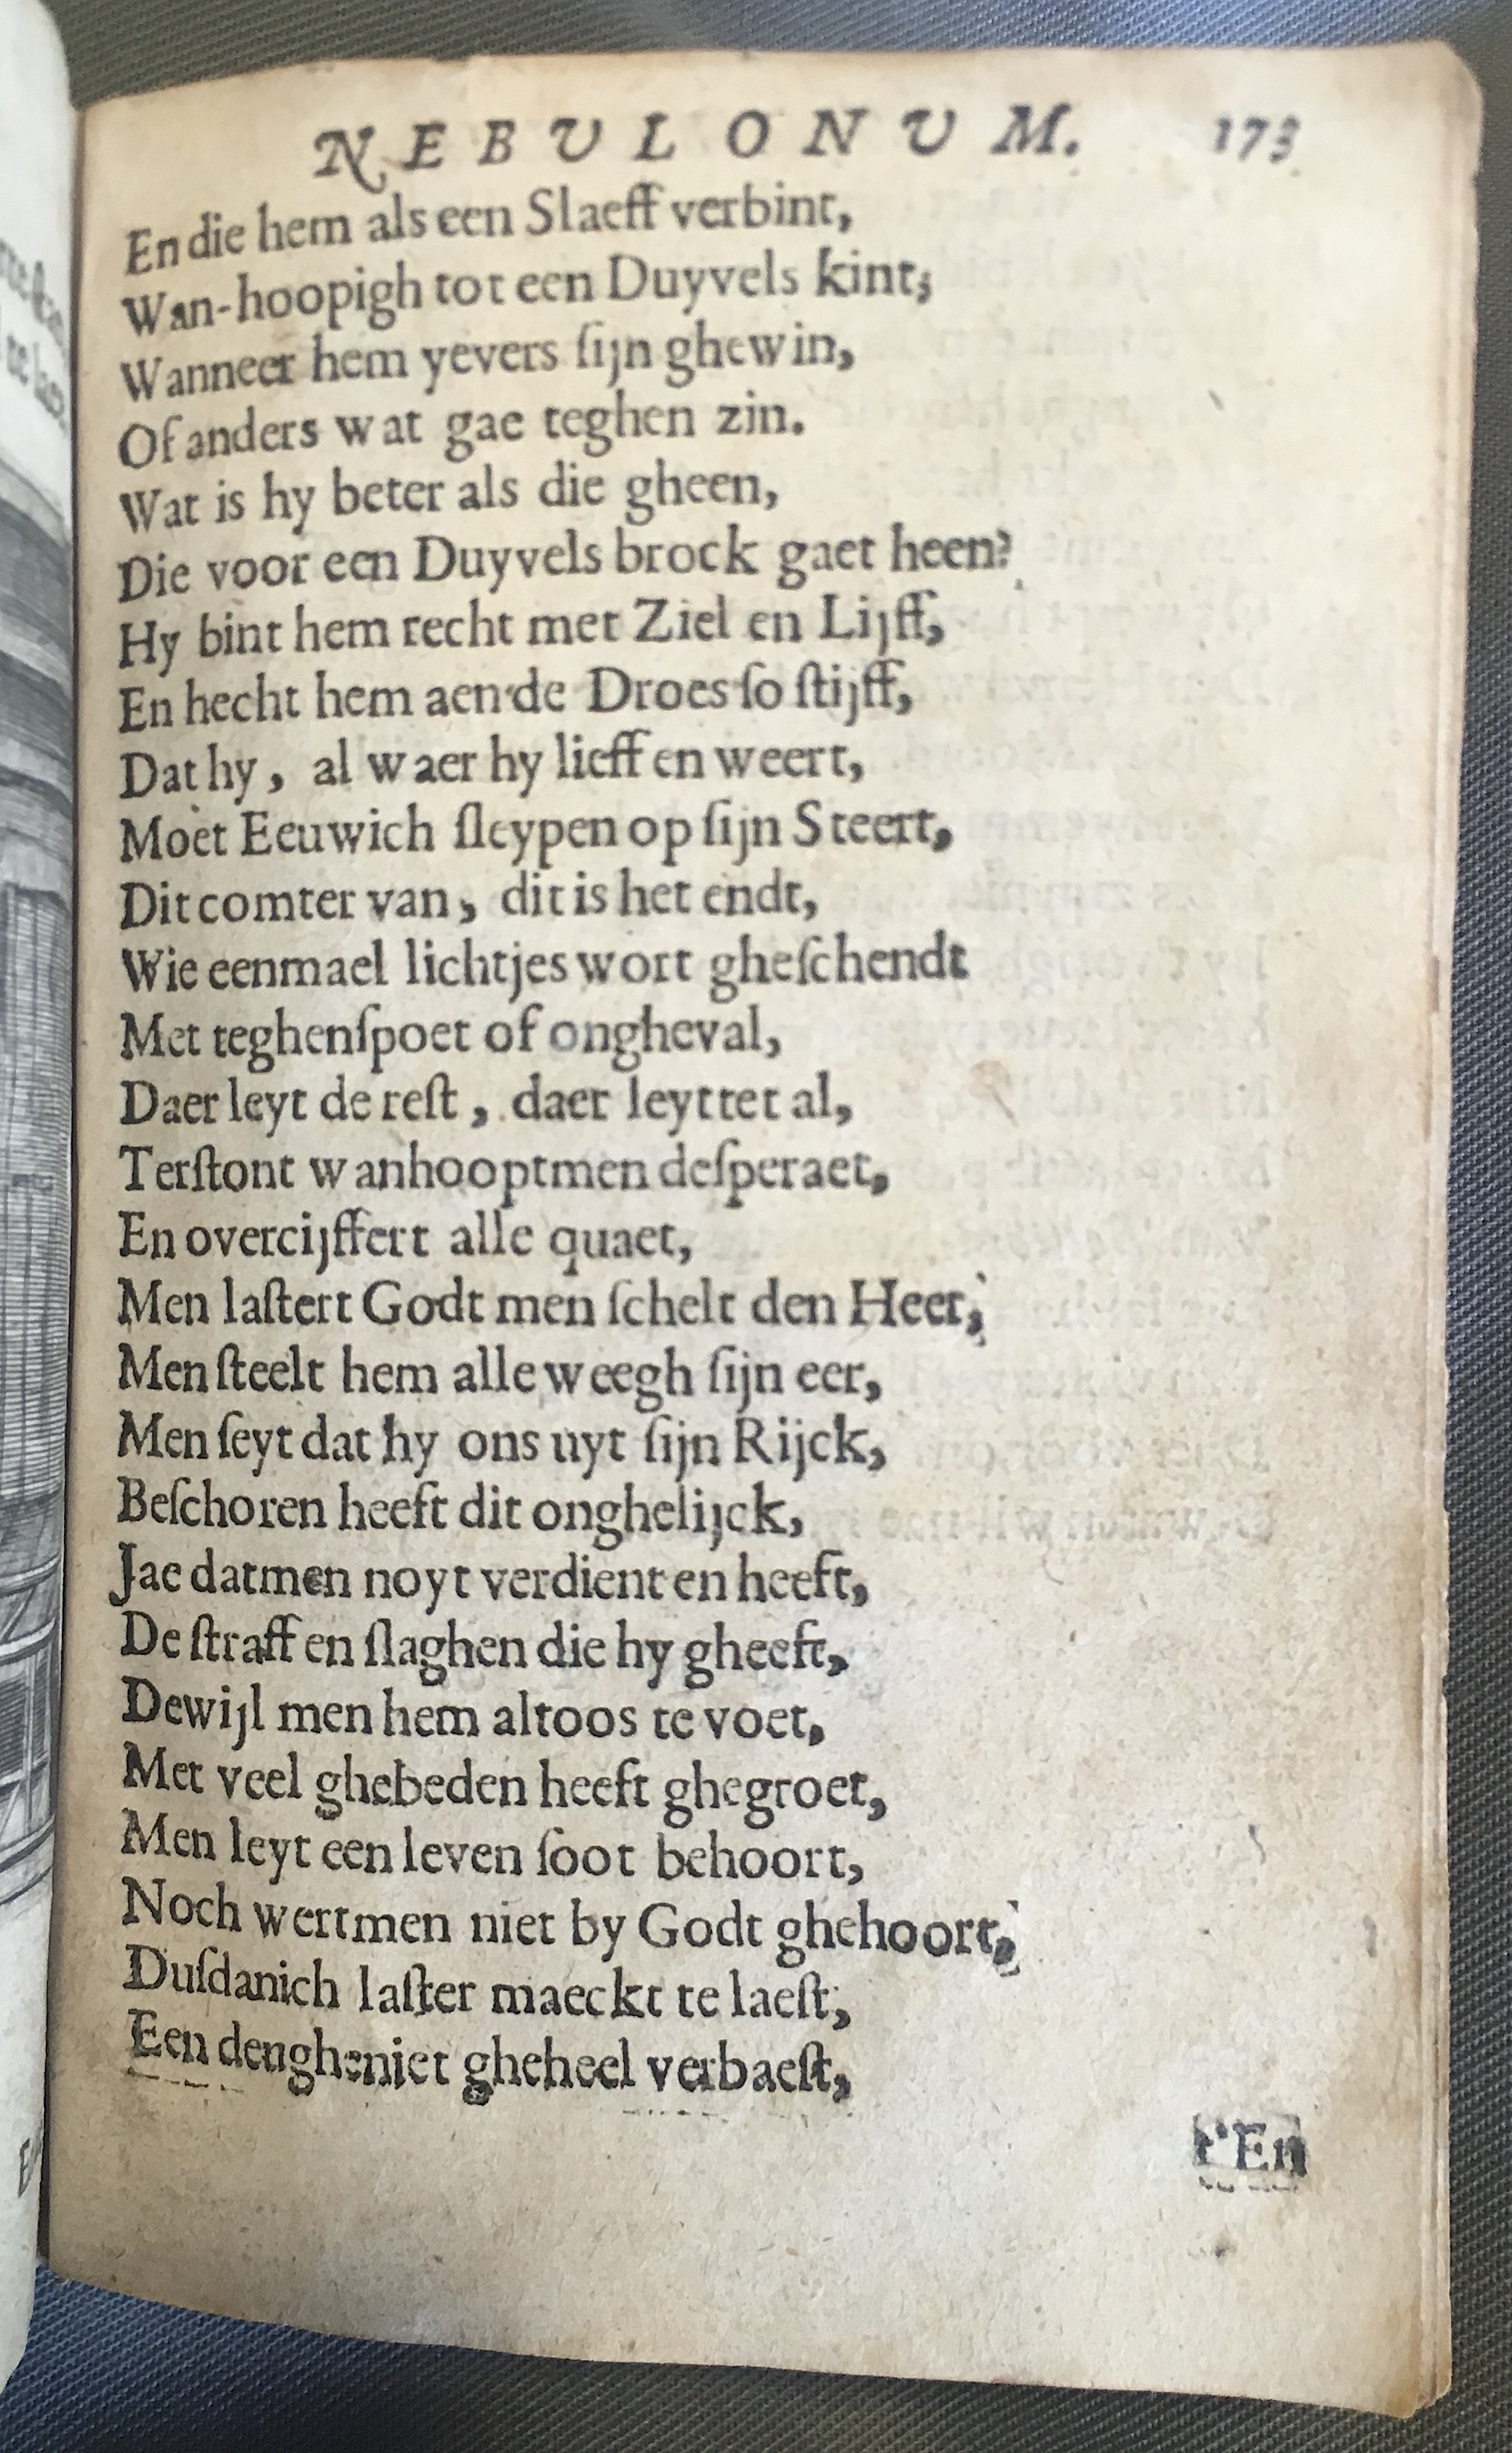 NEBULONUM. 173
En die hem als een Slaeff verbint,
Wan-hoopigh tot een Duyvels kint;
Wanneer hem yevers ſijn ghewin,
Of anders wat gae teghen zin.
Wat is hy beter als die gheen,
Die voor een Duyvels brock gaet heen?
Hy bint hem recht met Ziel en Lijff,
En hecht hem aen de Droes ſo ſtijff,
Dat hy, al waer hy lieff en weert,
Moet Eeuwich ſleypen op ſijn Steert,
Dit comter van, dit is het endt,
Wie eenmael lichtjes wort gheſchendt
Met teghenſpoet of ongheval,
Daer leyt de reſt, daer leyttet al,
Terſtont wanhooptmen deſperaet,
En overcijffert alle quaet,
Men laſtert Godt men ſchelt den Heer,
Men ſteelt hem alle weegh ſijn eer,
Men ſeyt dat hy ons uyt ſijn Rijck,
Beſchoren heeft dit onghelijck,
Jae datmen noyt verdient en heeft,
De ſtraff en ſlaghen die hy gheeft,
Dewijl men hem altoos te voet,
Met veel ghebeden heeft ghegroet,
Men leyt een leven ſoot behoort,
Noch wertmen niet by Godt ghehoort,
Duſdanich laſter maeckt te laeſt,
Een dengheniet gheheel verbaeſt,
t'En